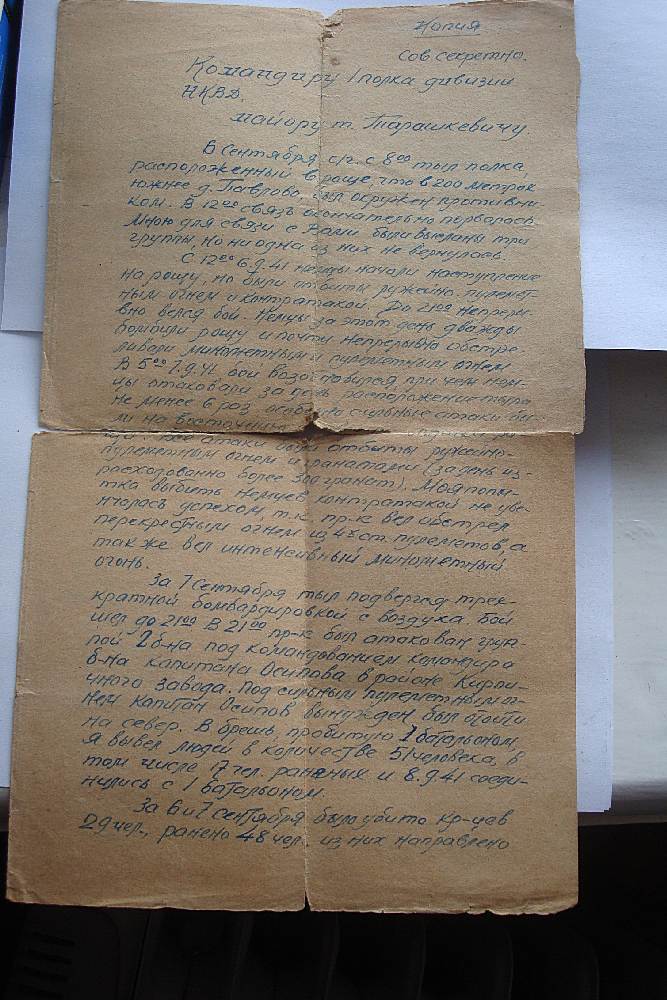 Копия
Сов. секретно.
Командиру 1 полка дивизии
НКВД
майору т. Тарашкевичу
6 сентября с/г. с 8⁰⁰ тыл полка,
расположенный в роще, что в 200 метрах
южнее д. Павлово, был окружен противни-
ком. В 12⁰⁰ связь окончательно порвалась.
Мною для связи с Вами были высланы три
группы, но ни одна из них не вернулась.
С 12⁰⁰ 6.9.41 немцы начали наступление
на рощу, но были отбиты ружейно-пулемет-
ным огнем и контратакой. До 21⁰⁰ непреры-
вно велся бой. Немцы за этот день дважды
бомбили рощу и почти непрерывно обстре-
ливали минометным и пулеметным огнем
В 5⁰⁰ 7.9.41 бой возобновился, при чем нем-
цы атаковали за день расположение тыла
не менее 6 раз, особенно сильные атаки бы-
ли на восточн
щи. Все атаки были отбиты ружейно-
пулеметным огнем и гранатами (за день из-
расходованно более 300 гранат). Моя попы-
тка выбить немцев контратакой не уве-
нчалась успехом, т.к. пр-к вел обстрел
перекрестным огнем из 4х ст. пулеметов, а
так же вел интенсивный минометный
огонь.
За 7 сентября тыл подвергся трех-
кратной бомбардировкой с воздуха. Бой
шел до 21⁰⁰ В 21⁰⁰ пр-к был атакован груп-
пой 1 б-на под командованием командира
б-на капитана Осипова в районе Кирпи-
чного завода. Под сильным пулеметным ог-
нем капитан Осипов вынужден был отойти
на север. В брешь, пробитую 1 батальоном,
я вывел людей в количестве 51 человека, в
том числе 17 чел. раненых и 8.9.41 соеди-
нились с 1 батальоном.
За 6 и 7 сентября было убито кр-цев
29 чел., ранено 48 чел. из них направлено